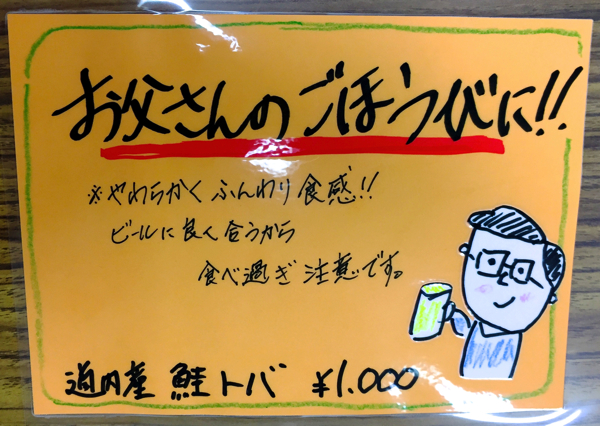 お父さんのごほうびに!!
※やわらかくふんわり食感!!
ビールに良く合うから
食べ過ぎ注意です。
道内産 鮭トバ ¥1.000